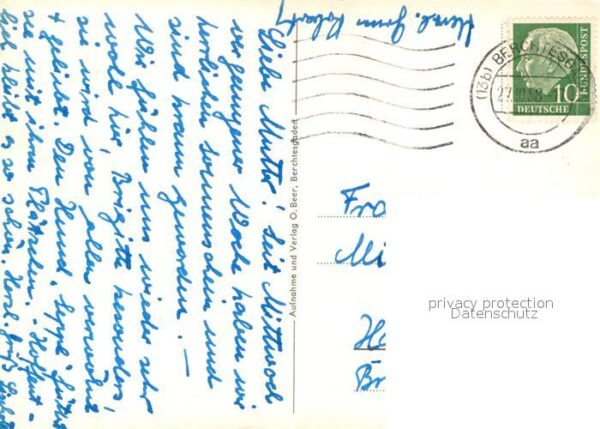 Liebe Mutter! Seit Mittwoch
voriger Woche haben wir
herrlichen Sonnenschein und
sind braun geworden. –
Wir fühlen uns wieder sehr
wohl hier, Brigitte besonders,
sie wird von allen verwöhnt
+ geliebt. Den Hund, Seppl, füttert
sie mit ihren Plätzchen. – Hoffent-
lich bleibt es so schön. Herzl. Grüße
Herzl.
Aufnahme und Verlag O. Beer, Berchtesgaden
(13b) BERCHTESG
27.10.58
aa
10
DEUTSCHE
BUNDESPOST
Fra
Mi
He
Br
privacy protection
Datenschutz